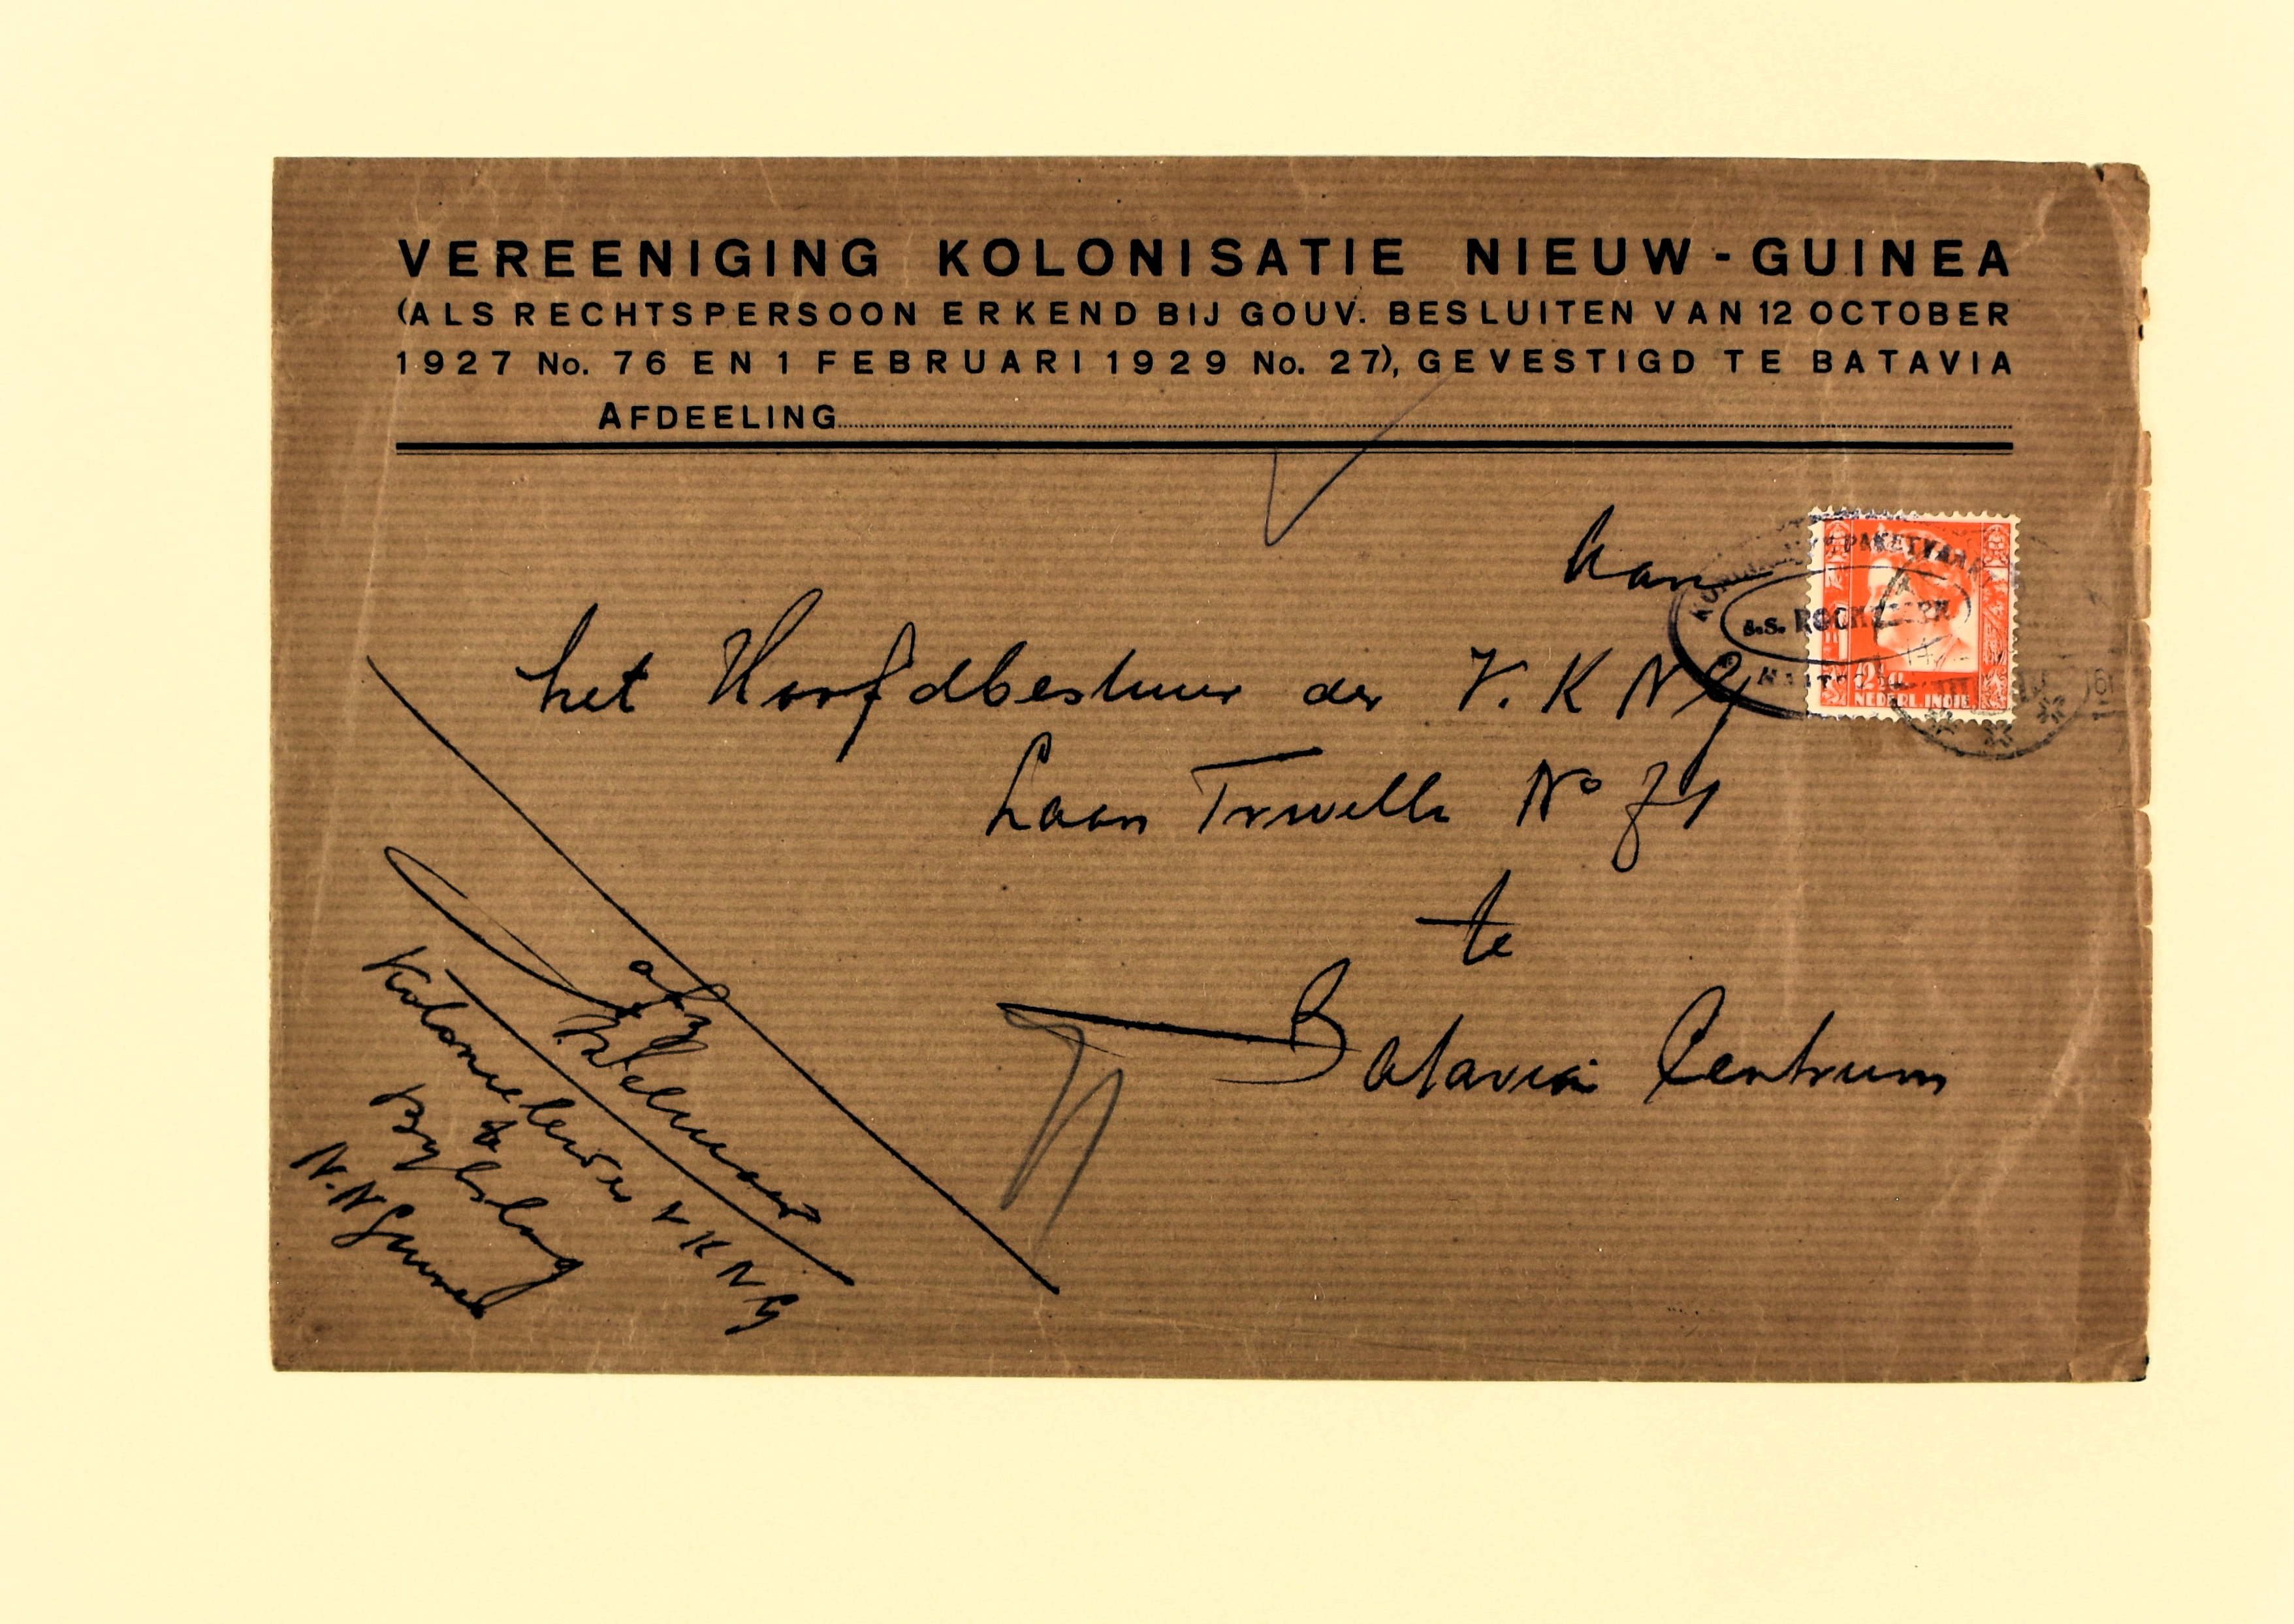 VEREENIGING KOLONISATIE NIEUW-GUINEA
(ALS RECHTSPERSOON ERKEND BIJ GOUV. BESLUITEN VAN 12 OCTOBER
1927 No. 76 EN 1 FEBRUARI 1929 No. 27), GEVESTIGD TE BATAVIA
AFDEELING
Aan
het Hoofdbestuur der V.K N G
Laan Trivelli No 71
te
Batavia Centrum
PAKETVAART
s.s.
NEDERL. INDIE
afz
te
V K N G
N. N Guinea